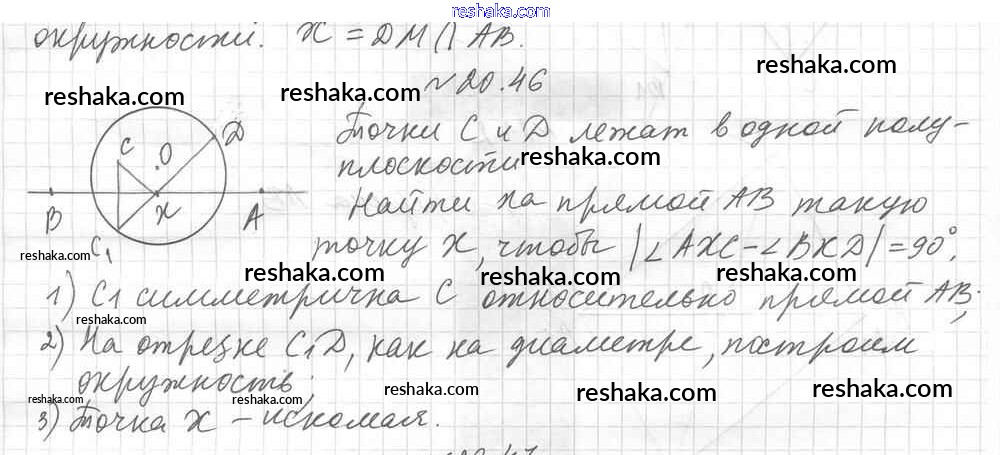 reshaka.com
окружности. X = DM ∩ AB.
reshaka.com
№20.46
reshaka.com
reshaka.com
Точки C и D лежат в одной полу-
плоскости
reshaka.com
Найти на прямой AB такую
точку X, чтобы |∠AXC-∠BXD|=90°.
C
O
D
B
X
A
C₁
reshaka.com
reshaka.com
reshaka.com
reshaka.com
1) C1 симметрична C относительно прямой AB;
reshaka.com
2) На отрезке C₁D, как на диаметре, построим
окружность;
reshaka.com
reshaka.com
reshaka.com
reshaka.com
3) Точка X – искомая.
reshaka.com